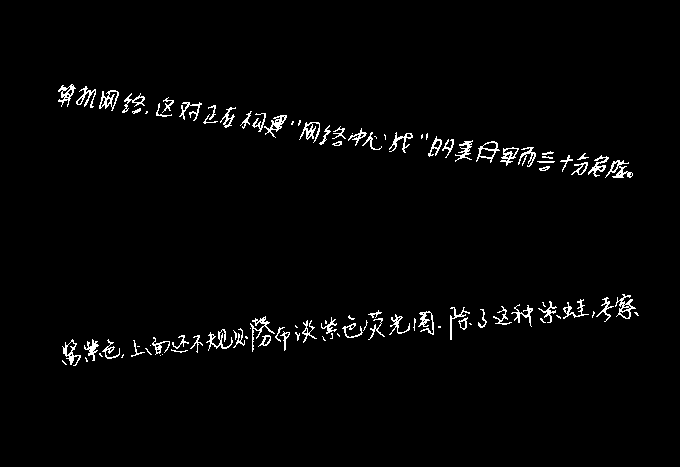 算机网络,这对正在构建“网络中心战”的美日军而言十分危险。
紫色,上面还不规则分布淡紫色荧光圈.除了这种紫蛙,考察